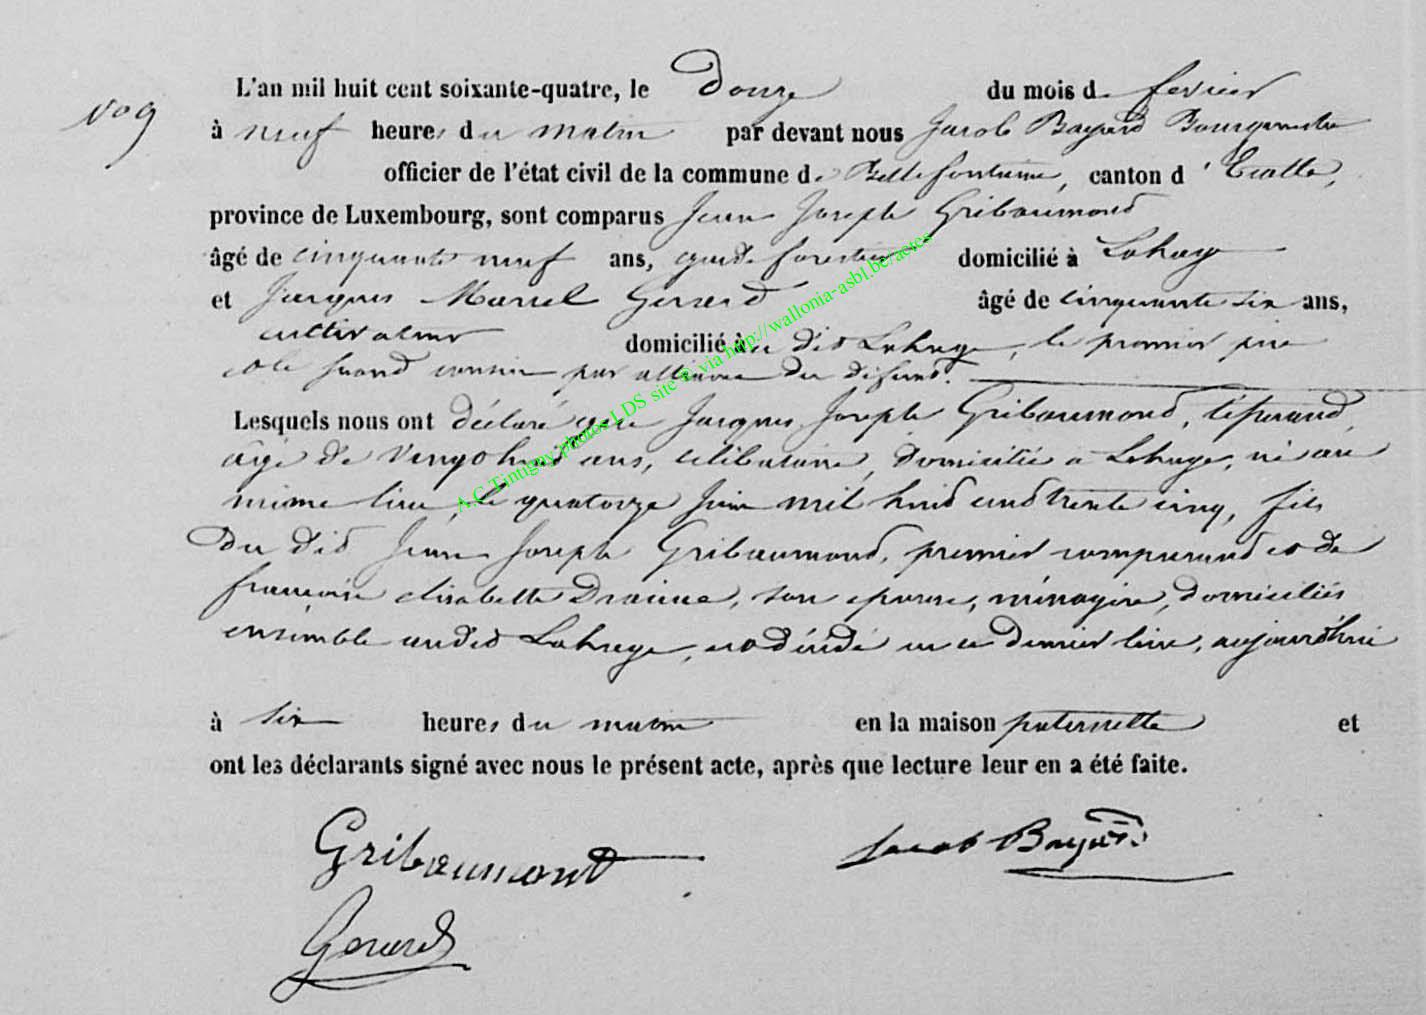 N° 9
L'an mil huit cent soixante-quatre, le Douze du mois de fevrier
à neuf heures du matin par devant nous Jacob Bayard Bourgmestre
officier de l'état civil de la commune de Bellefontaine, canton d'Etalle,
province de Luxembourg, sont comparus Jean Joseph Gribaumont
âgé de cinquante neuf ans, garde forestier domicilié à Lahage
et Jacques Marcel Gerard âgé de cinquante six ans,
cultivateur domicilié au dit Lahage, le premier père
et le second cousin par alliance du defunt.
Lesquels nous ont déclaré que Jacques Joseph Gribaumont,
âgé de Vingt huit ans, célibataire, domicilié à Lahage, né au
même lieu, le quatorze Juin mil huit cent trente cinq, fils
du dit Jean Joseph Gribaumont, premier comparant et de
françoise elisabette Draime, son epouse, ménagère, domiciliés
ensemble audit Lahage, est décédé en ce dernier lieu, aujourd'hui
à six heures du matin en la maison paternelle et
ont les déclarants signé avec nous le présent acte, après que lecture leur en a été faite.
Gribaumont Jacob Bayard
Gerard
A.C.Tintigny photos LDS site © via http://wallonia-asbl.be/actes